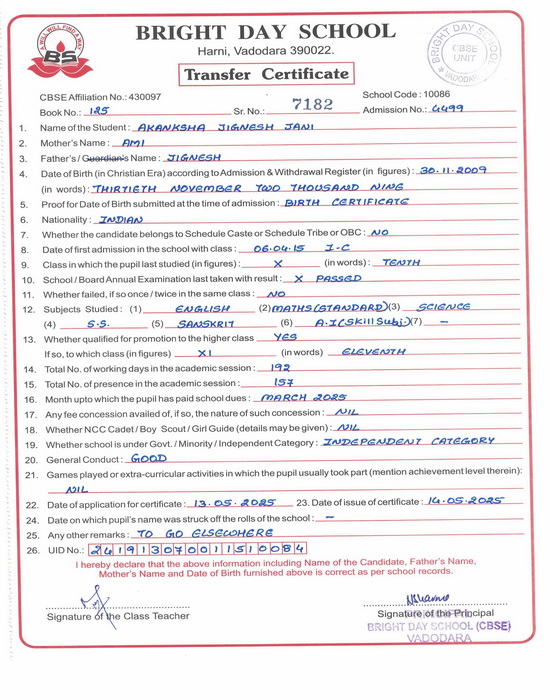 A WILL WILL FIND A WAY
BS
BRIGHT DAY SCHOOL
Harni, Vadodara 390022.
Transfer Certificate
BRIGHT DAY SCHOOL
CBSE
UNIT
VADODARA
CBSE Affiliation No.: 430097 School Code : 10086
Book No.: 125 Sr. No.: 7182 Admission No.: 4499
1. Name of the Student : AKANKSHA JIGNESH JANI
2. Mother's Name : AMI
3. Father's / Guardian's Name : JIGNESH
4. Date of Birth (in Christian Era) according to Admission & Withdrawal Register (in figures) : 30.11.2009
(in words) : THIRTIETH NOVEMBER TWO THOUSAND NINE
5. Proof for Date of Birth submitted at the time of admission : BIRTH CERTIFICATE
6. Nationality : INDIAN
7. Whether the candidate belongs to Schedule Caste or Schedule Tribe or OBC : NO
8. Date of first admission in the school with class : 06.04.15 I-C
9. Class in which the pupil last studied (in figures) : X (in words) : TENTH
10. School / Board Annual Examination last taken with result : X PASSED
11. Whether failed, if so once / twice in the same class : NO
12. Subjects Studied : (1) ENGLISH (2) MATHS(STANDARD) (3) SCIENCE
(4) S.S. (5) SANSKRIT (6) A.I(Skill Subj.) (7) –
13. Whether qualified for promotion to the higher class YES
If so, to which class (in figures) XI (in words) ELEVENTH
14. Total No. of working days in the academic session : 192
15. Total No. of presence in the academic session : 157
16. Month upto which the pupil has paid school dues : MARCH 2025
17. Any fee concession availed of, if so, the nature of such concession : NIL
18. Whether NCC Cadet / Boy Scout / Girl Guide (details may be given) : NIL
19. Whether school is under Govt. / Minority / Independent Category : INDEPENDENT CATEGORY
20. General Conduct : GOOD
21. Games played or extra-curricular activities in which the pupil usually took part (mention achievement level therein) :
NIL
22. Date of application for certificate : 13.05.2025 23. Date of issue of certificate : 14.05.2025
24. Date on which pupil's name was struck off the rolls of the school : –
25. Any other remarks : TO GO ELSEWHERE
26. UID No.: 241913070011510084
I hereby declare that the above information including Name of the Candidate, Father's Name,
Mother's Name and Date of Birth furnished above is correct as per school records.
Signature of the Class Teacher Signature of the Principal
BRIGHT DAY SCHOOL (CBSE)
VADODARA